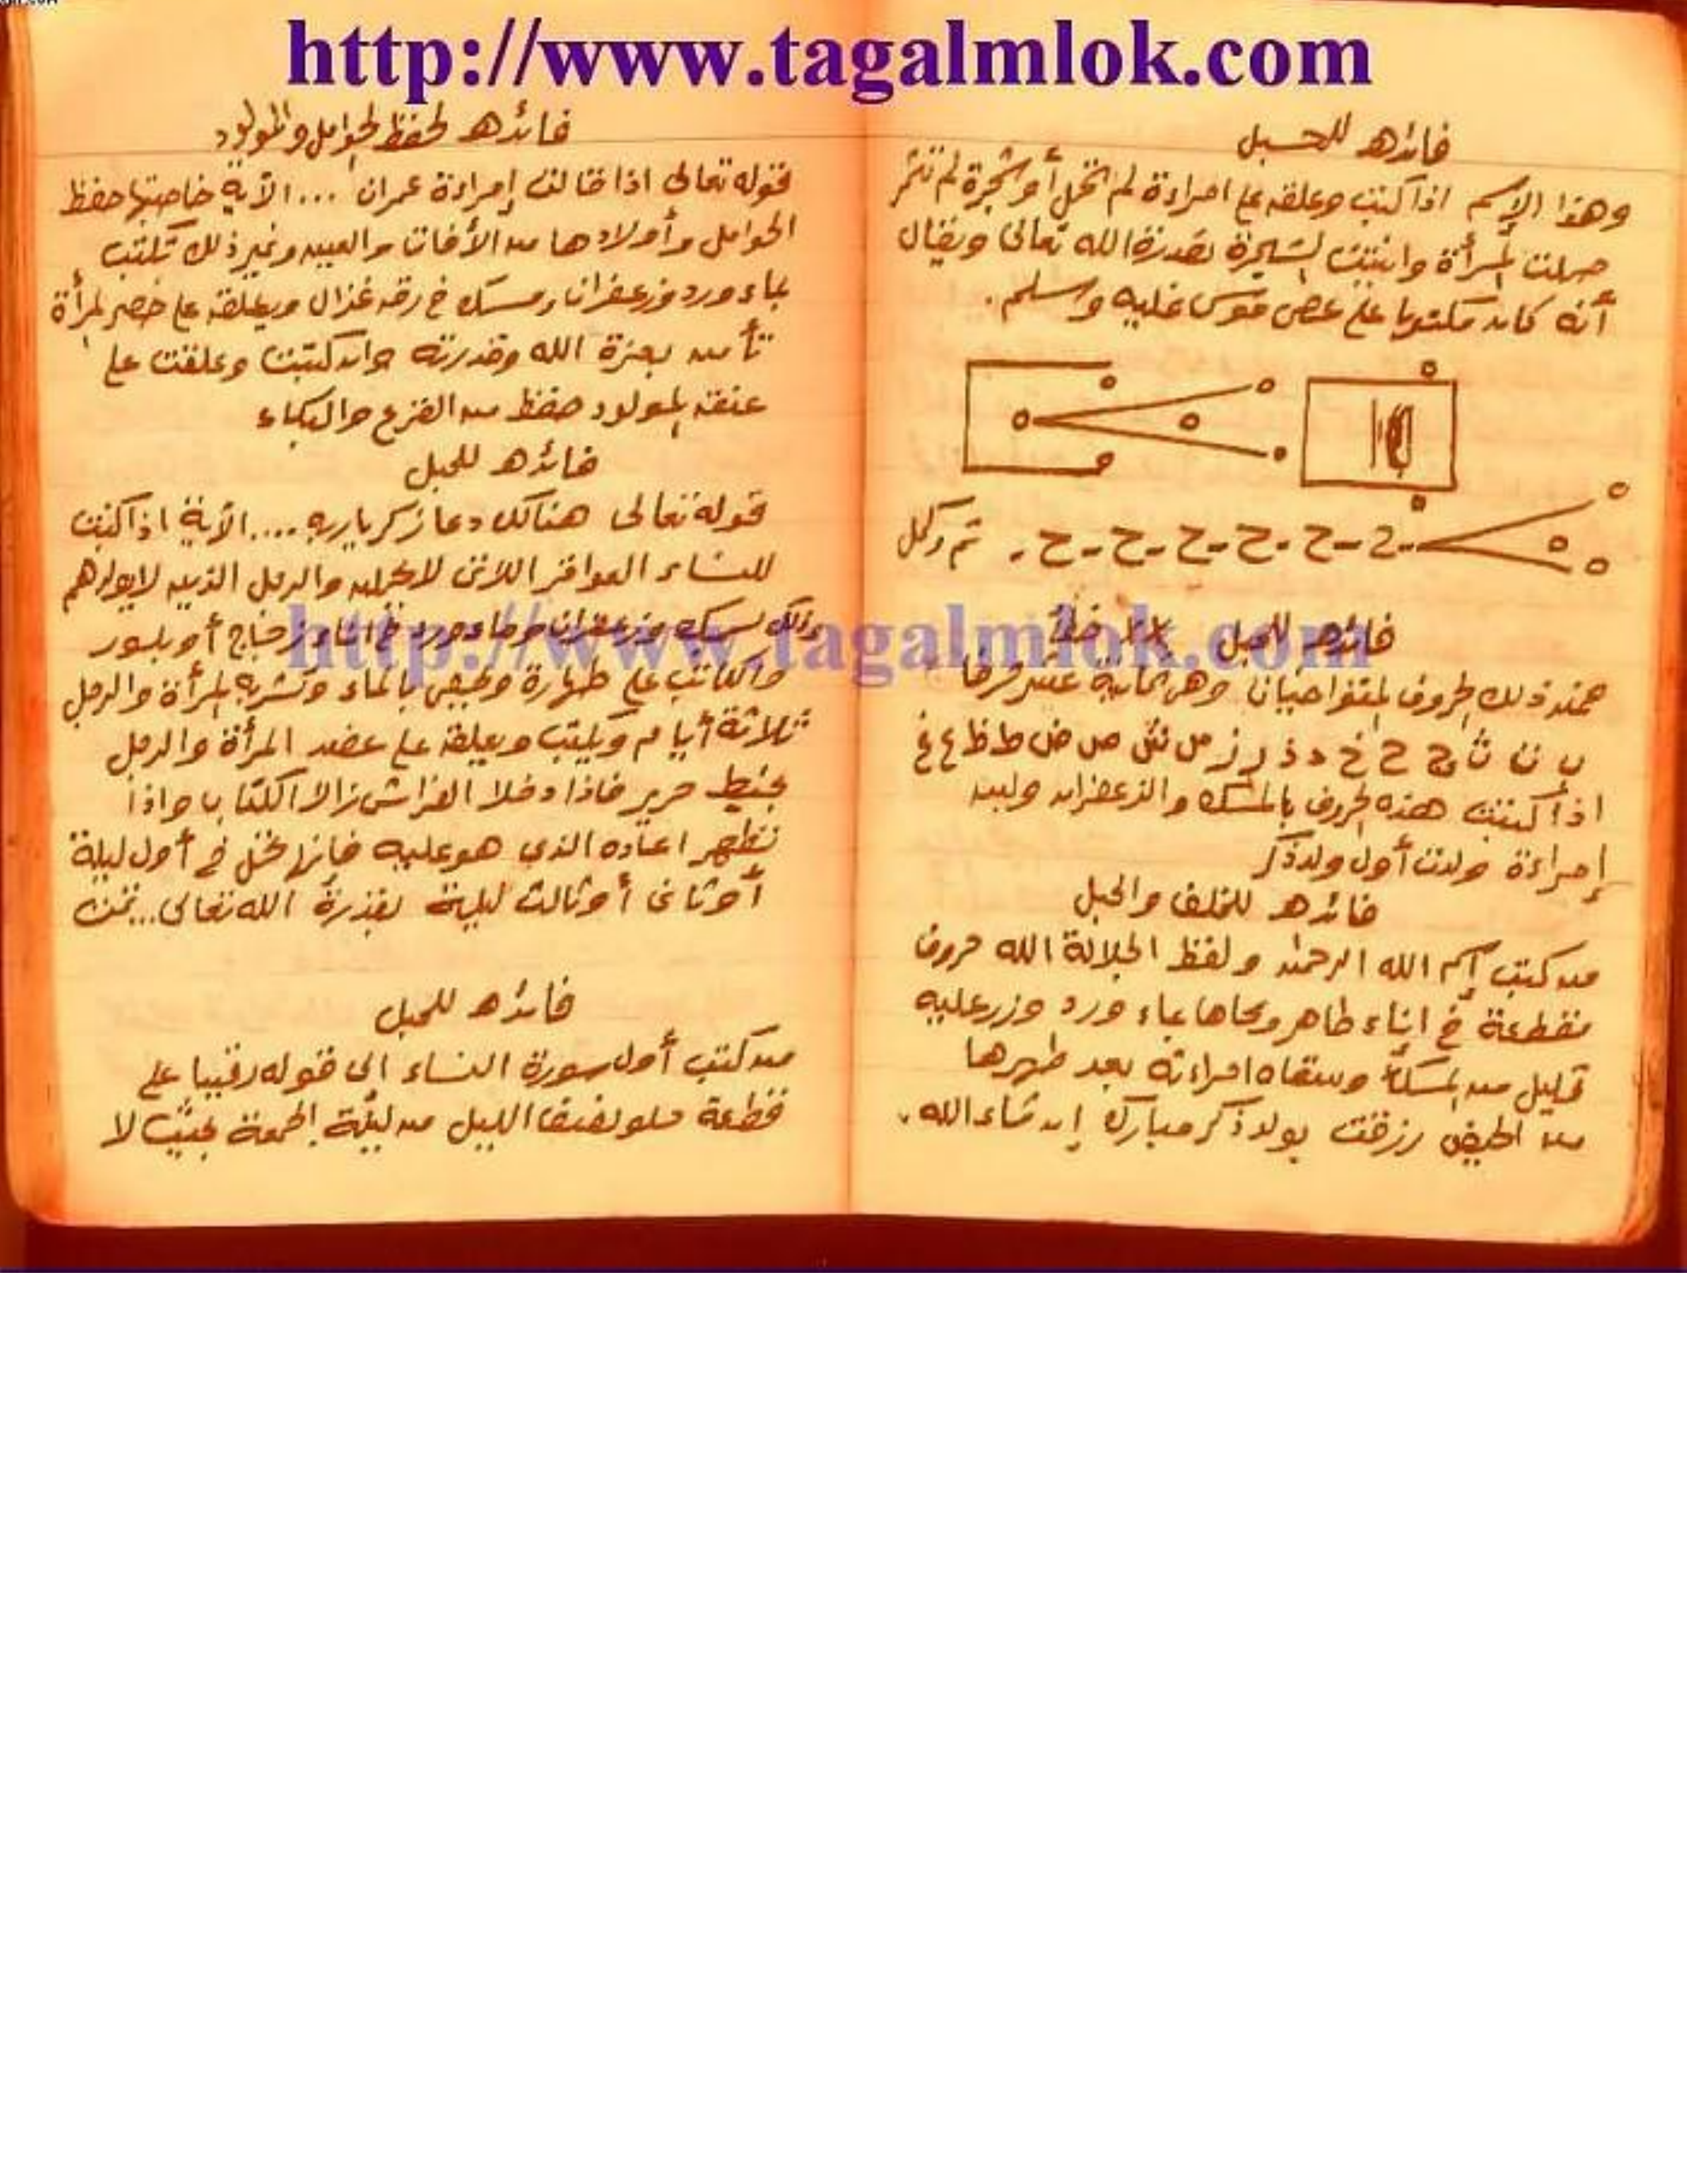 http://www.tagalmlok.com
فائده للحبل
وهذا الإسم اذا كتب وعلقه على امراءة لم تحمل أو شجرة لم تثمر
حملت المرأة وانبتت الشجرة بقدرة الله تعالى ويقال
أنه كان مكتوبا على عصى موسى عليه وسلم.
ح - ح - ح - ح - ح - ح - تم وكمل
فائده للحبل
فمن ذلك الحروف المتواخيات وهي ثمانية عشر حرفا
ب ت ث ج ح خ د ذ ر ز س ش ص ض ط ظ ع غ
اذا كتبت هذه الحروف بالمسك والزعفران
إمراءة ولدت أول ولد ذكر
فائده للخلف والحبل
من كتب إسم الله الرحمن ولفظ الجلالة الله حروف
مقطعة في اناء طاهر ومحاها بماء ورد وزر عليه
قليل من المسك وسقاه امراءته بعد طهرها
من الحيض رزقت بولد ذكر مبارك إن شاء الله.
فائده لحفظ الحوامل والمولود
قوله تعالى اذا قالت إمراءة عمران ... الآية خاصيتها حفظ
الحوامل وأولادها من الأفات والعين وغير ذلك تكتب
بماء ورد وزعفران ومسك في رق غزال ويعلقه على خصر المرأة
تأمن بعزة الله وقدرته وان كتبت وعلقت على
عنق المولود حفظ من الفزع والبكاء
فائده للحبل
قوله تعالى هنالك دعا زكريا ربه .... الآية اذا كتبت
للنساء العواقر اللاتى لا يحملن والرجل الذين لا يولد لهم
وذلك بمسك وزعفران وماء ورد في اناء زجاج أو بلور
http://www.tagalmlok.com
والكاتب على طهارة ويمحى بالماء وتشربه المرأة والرجل
ثلاثة أيام ويكتب ويعلقه على عضد المرأة والرجل
بخيط حرير فاذا دخلا الفراش زالا الكتاب واذا
تطهر اعاده الذي هو عليه فإنها تحمل في أول ليلة
أو ثانى أو ثالث ليلة بقدرة الله تعالى... تمت
فائده للحبل
من كتب أول سورة النساء الى قوله رقيبا على
قطعة حلو نصف الليل من ليلة الجمعة بحيث لا